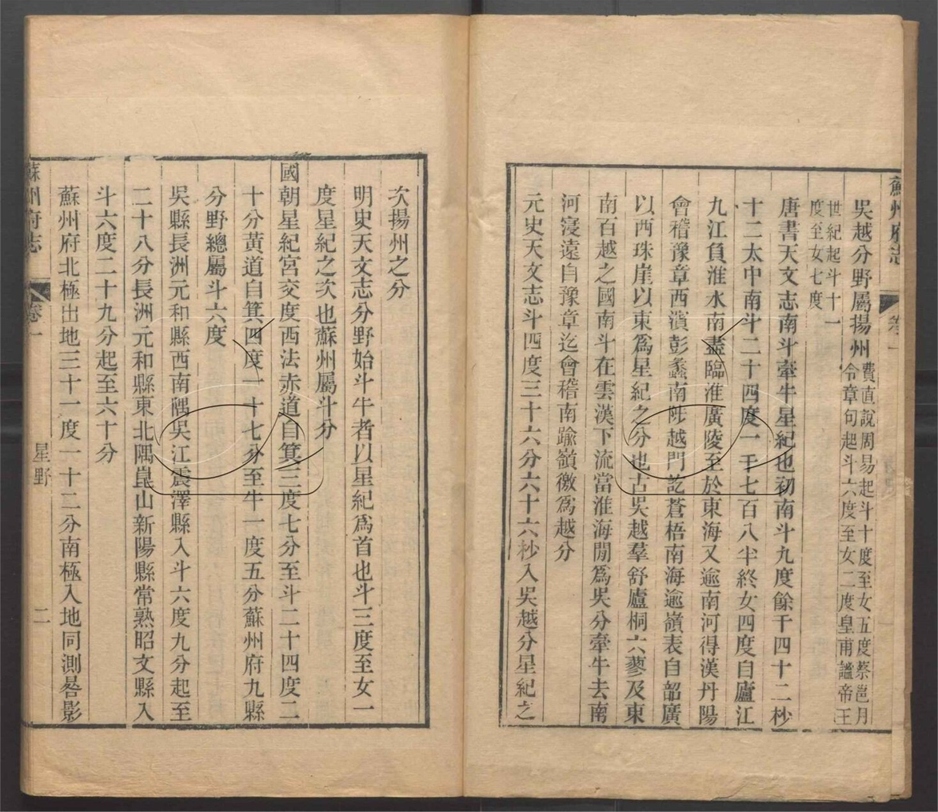 蘇州府志
卷一
吳越分野屬揚州費直說周易起斗十度至女五度蔡邕月
令章句起斗六度至女二度皇甫謐帝王
世紀起斗十一
度至女七度
唐書天文志南斗牽牛星紀也初南斗九度餘千四十二秒
十二太中南斗二十四度一千七百八半終女四度自廬江
九江負淮水南盡臨淮廣陵至於東海又逾南河得漢丹陽
會稽豫章西濱彭蠡南陟越門訖蒼梧南海逾嶺表自韶廣
以西珠崖以東爲星紀之分也古吳越羣舒廬桐六蓼及東
南百越之國南斗在雲漢下流當淮海閒爲吳分牽牛去南
河寖遠自豫章迄會稽南踰嶺徼爲越分
元史天文志斗四度三十六分六十六秒入吳越分星紀之
次揚州之分
明史天文志分野始斗牛者以星紀爲首也斗三度至女一
度星紀之次也蘇州屬斗分
國朝星紀宮交度西法赤道自箕三度七分至斗二十四度二
十分黃道自箕四度一十七分至牛一度五分蘇州府九縣
分野總屬斗六度
吳縣長洲元和縣西南隅吳江震澤縣入斗六度九分起至
二十八分長洲元和縣東北隅崑山新陽縣常熟昭文縣入
斗六度二十九分起至六十分
蘇州府北極出地三十一度一十二分南極入地同測晷影
蘇州府志
卷一
星野
二